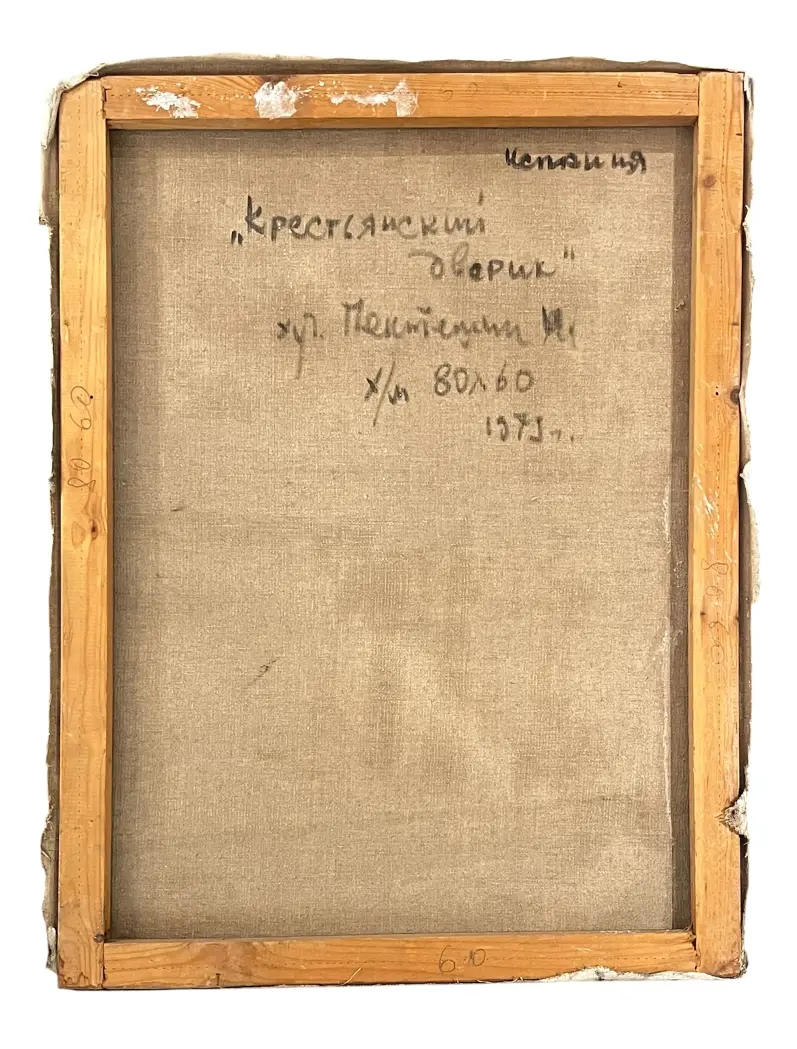 Испания
„Крестьянский
дворик"
худ.
х/м 80х60
1979г.
80 60
80 60
60